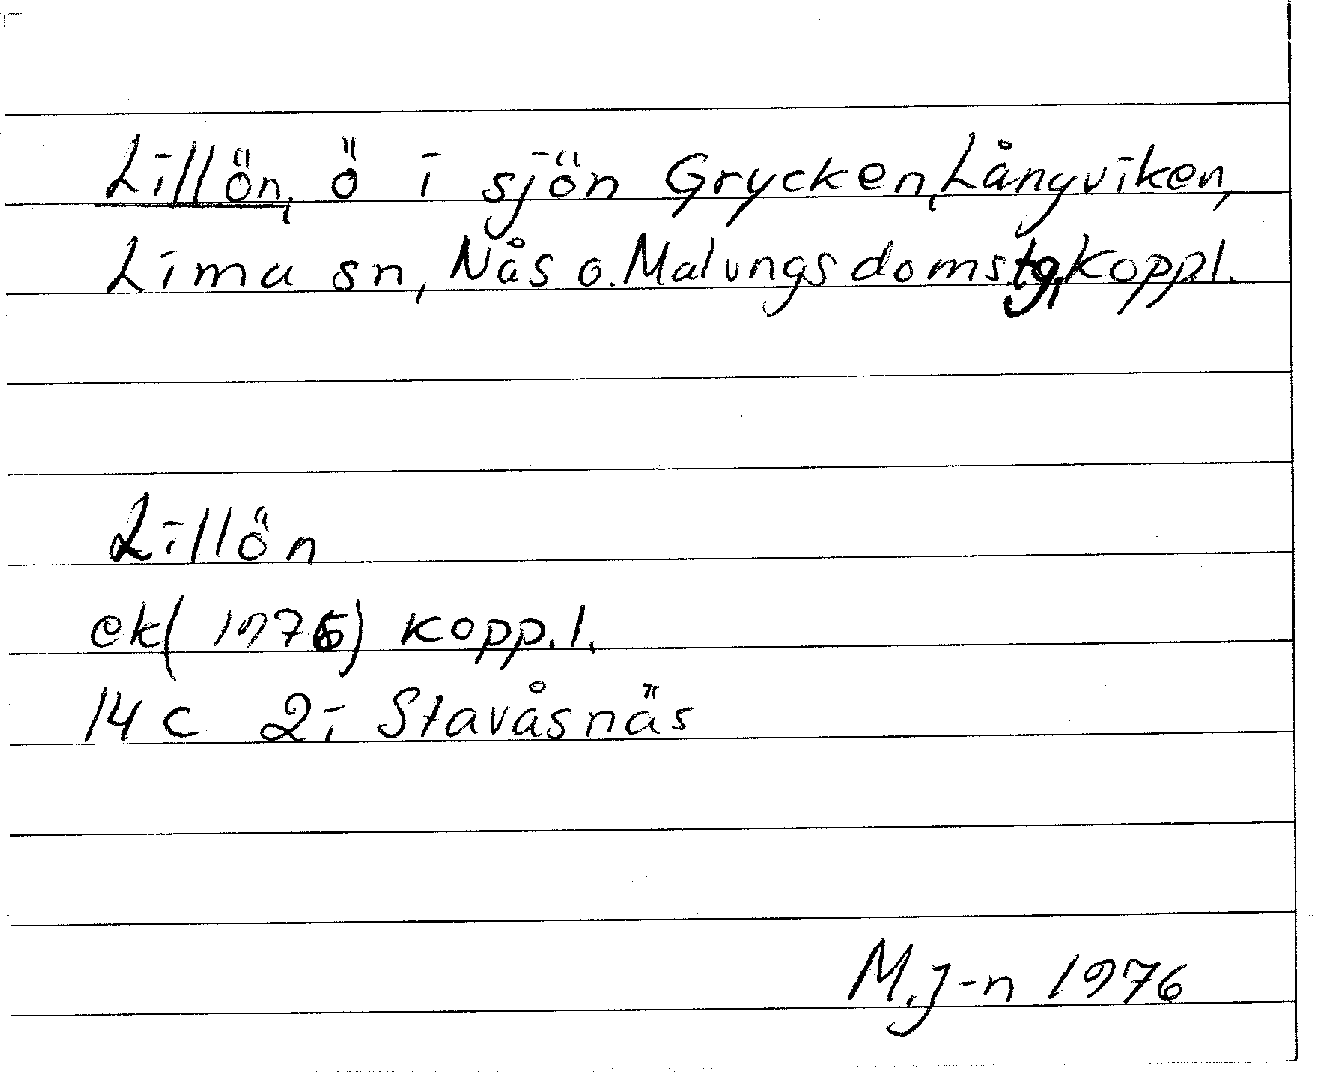 Lillön, ö i sjön Grycken, Långviken,
Lima sn, Nås o. Malungs domstg, Koppl.
Lillön
ek(1976) kopp.l.
14 C 2i Stavåsnäs
M.J-n 1976